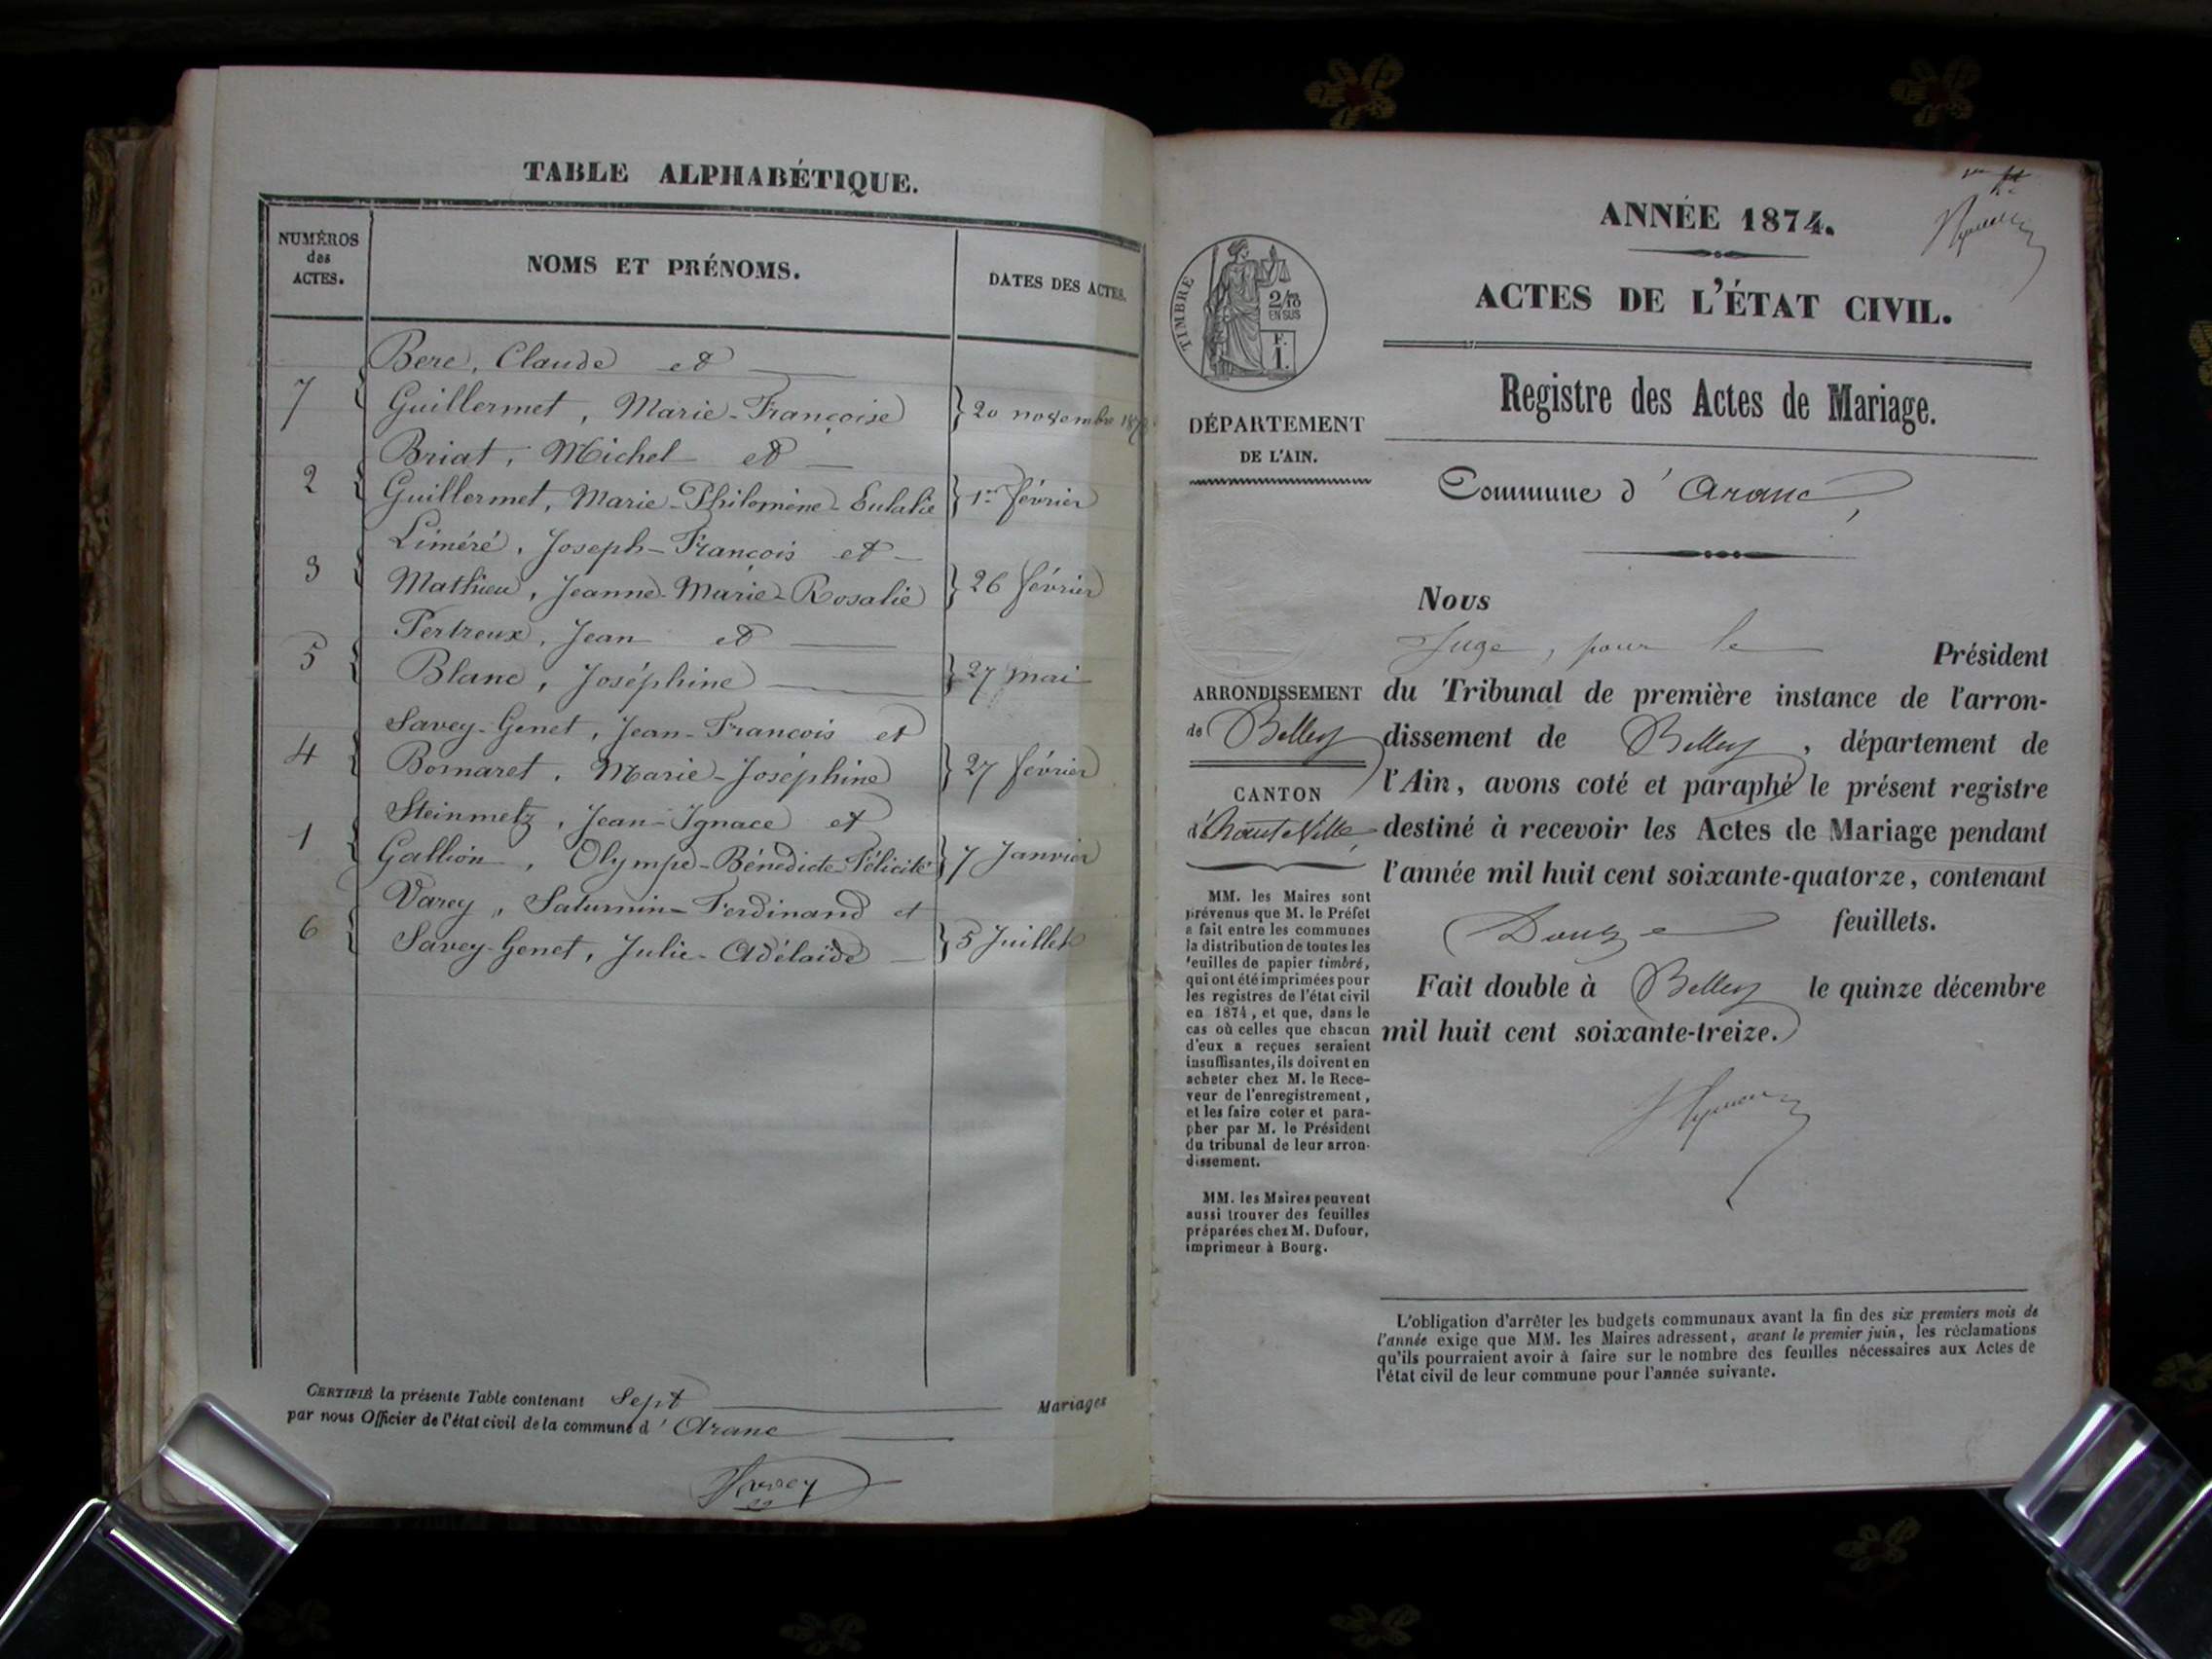 TABLE ALPHABÉTIQUE.
NUMÉROS des ACTES.
NOMS ET PRÉNOMS.
DATES DES ACTES.
Bere, Claude et
7 Guillermet, Marie-Françoise 20 novembre
Briat, Michel et
2 Guillermet, Marie-Philomène-Eulalie 1er février
Liméré, Joseph-François et
3 Mathieu, Jeanne-Marie-Rosalie 26 février
Pertreux, Jean et
5 Blanc, Joséphine 27 mai
Savey-Genet, Jean-François et
4 Bomaret, Marie-Joséphine 27 février
Steinmetz, Jean-Ignace et
1 Gallion, Olympe-Bénédicte-Félicité 7 Janvier
Varey, Saturnin-Ferdinand et
6 Savey-Genet, Julie-Adélaïde 5 Juillet
CERTIFIÉ la présente Table contenant Sept Mariages
par nous Officier de l'état civil de la commune d'Aranc
ANNÉE 1874.
ACTES DE L'ÉTAT CIVIL.
Registre des Actes de Mariage.
Commune d'Aranc,
TIMBRE
2/10 EN SUS
F. 1.
DÉPARTEMENT
DE L'AIN.
ARRONDISSEMENT
de Belley
CANTON
d'Hauteville
MM. les Maires sont
prévenus que M. le Préfet
a fait entre les communes
la distribution de toutes les
feuilles de papier timbré,
qui ont été imprimées pour
les registres de l'état civil
en 1874, et que, dans le
cas où celles que chacun
d'eux a reçues seraient
insuffisantes, ils doivent en
acheter chez M. le Rece-
veur de l'enregistrement,
et les faire coter et para-
pher par M. le Président
du tribunal de leur arron-
dissement.
MM. les Maires peuvent
aussi trouver des feuilles
préparées chez M. Dufour,
imprimeur à Bourg.
Nous
Juge, pour le Président
du Tribunal de première instance de l'arron-
dissement de Belley, département de
l'Ain, avons coté et paraphé le présent registre
destiné à recevoir les Actes de Mariage pendant
l'année mil huit cent soixante-quatorze, contenant
Douze feuillets.
Fait double à Belley le quinze décembre
mil huit cent soixante-treize.
L'obligation d'arrêter les budgets communaux avant la fin des six premiers mois de
l'année exige que MM. les Maires adressent, avant le premier juin, les réclamations
qu'ils pourraient avoir à faire sur le nombre des feuilles nécessaires aux Actes de
l'état civil de leur commune pour l'année suivante.